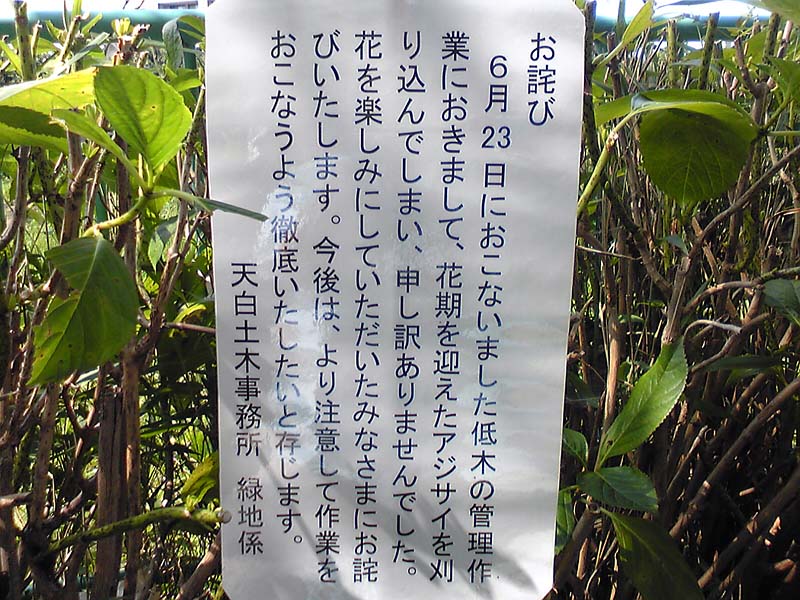 お詫び
６月23日におこないました低木の管理作
業におきまして、花期を迎えたアジサイを刈
り込んでしまい、申し訳ありませんでした。
花を楽しみにしていただいたみなさまにお詫
びいたします。今後は、より注意して作業を
おこなうよう徹底いたしたいと存じます。
天白土木事務所　緑地係